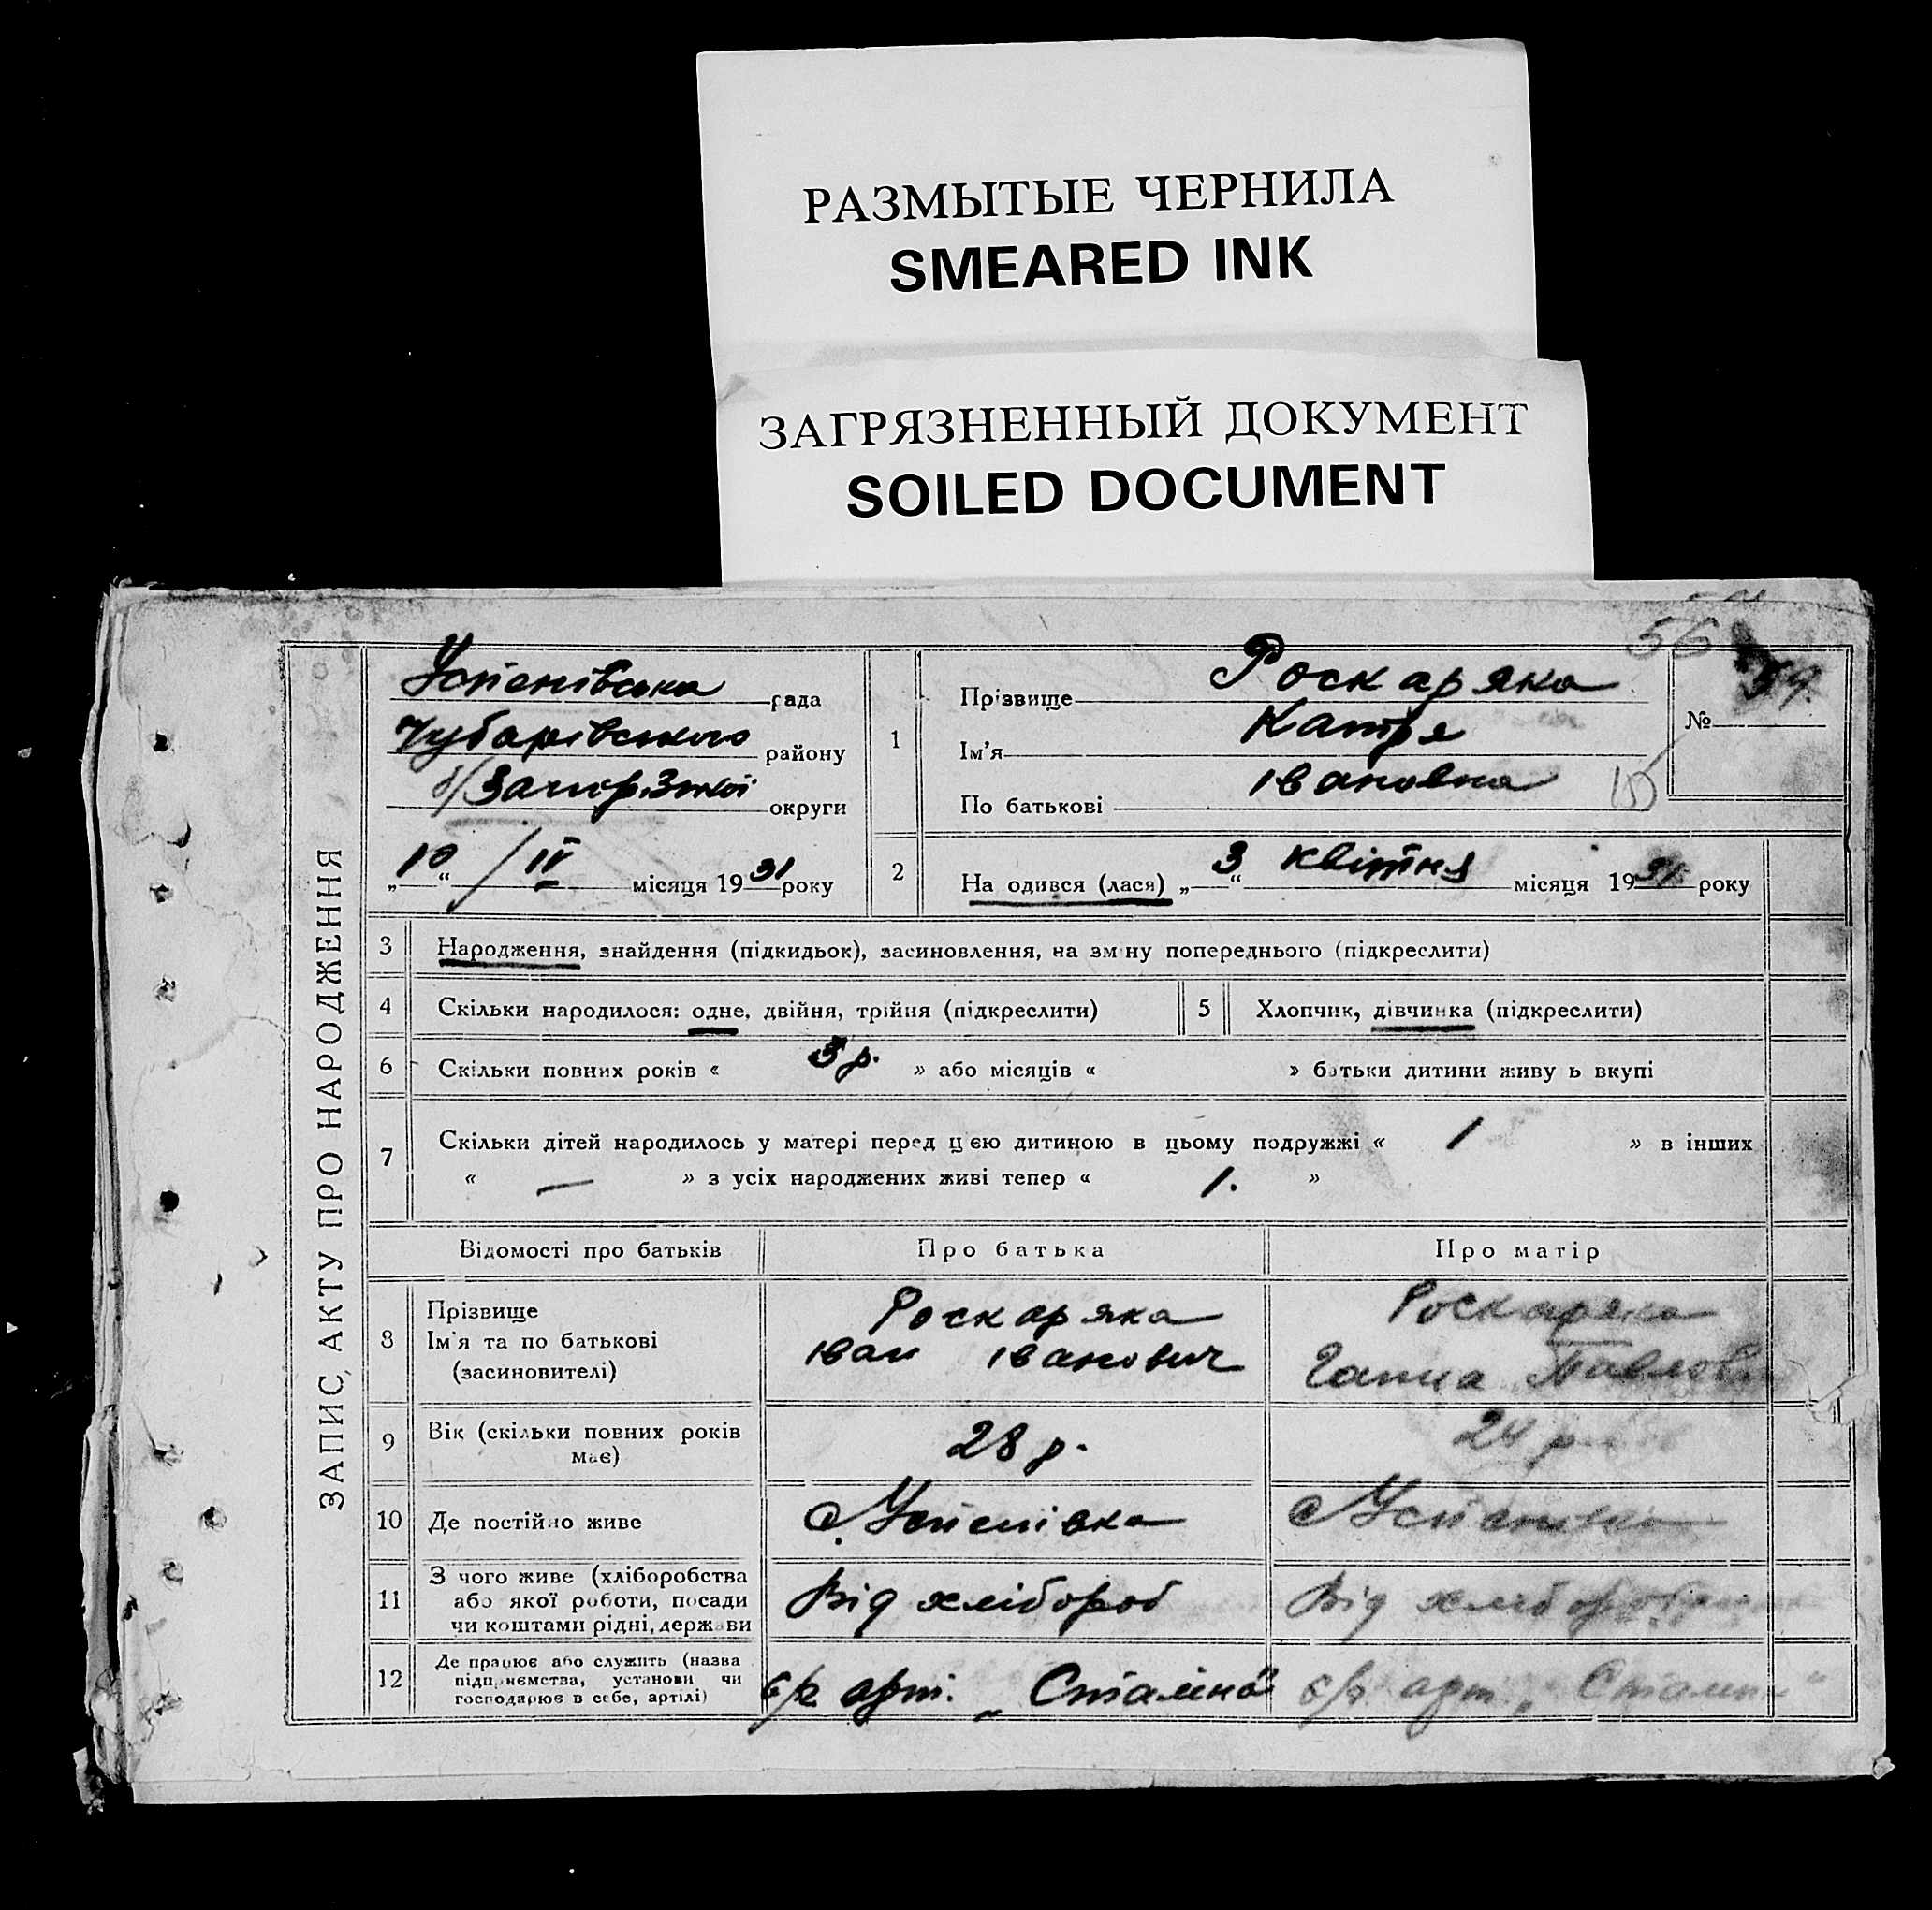 РАЗМЫТЫЕ ЧЕРНИЛА
SMEARED INK
ЗАГРЯЗНЕННЫЙ ДОКУМЕНТ
SOILED DOCUMENT
56
ЗАПИС АКТУ ПРО НАРОДЖЕННЯ
Успенівська рада
Чубарівського району
б/Запор.Зької округи
„10“ / IV місяця 1931 року
1
Прізвище Роскаряка
Ім'я Катря
По батькові Івановна
№ 54.
2 На одився (лася) „3“ квітня місяця 1931 року
3 Народження, знайдення (підкидьок), засиновлення, на зм ну попереднього (підкреслити)
4 Скільки народилося: одне, двійня, трійня (підкреслити)
5 Хлопчик, дівчинка (підкреслити)
6 Скільки повних років « 3 р. » або місяців « » батьки дитини живу ь вкупі
7 Скільки дітей народилось у матері перед цією дитиною в цьому подружжі « 1 » в інших
« — » з усіх народжених живі тепер « 1. »
Відомості про батьків Про батька Про матір
8 Прізвище
Ім'я та по батькові
(засиновителі)
Роскаряка
Іван Іванович
Роскаряка
Ганна Павлов
9 Вік (скільки повних років
має)
28 р.
24 р
10 Де постійно живе
с Успенівка
с Успенівка
11 З чого живе (хліборобства
або якої роботи, посади
чи коштами рідні, держави
Від хлібороб
Від хлібороб
12 Де працює або служить (назва
підприємства, установи чи
господарює в себе, артілі)
с/г арт. „Сталіна“
с/г арт „Сталіна“